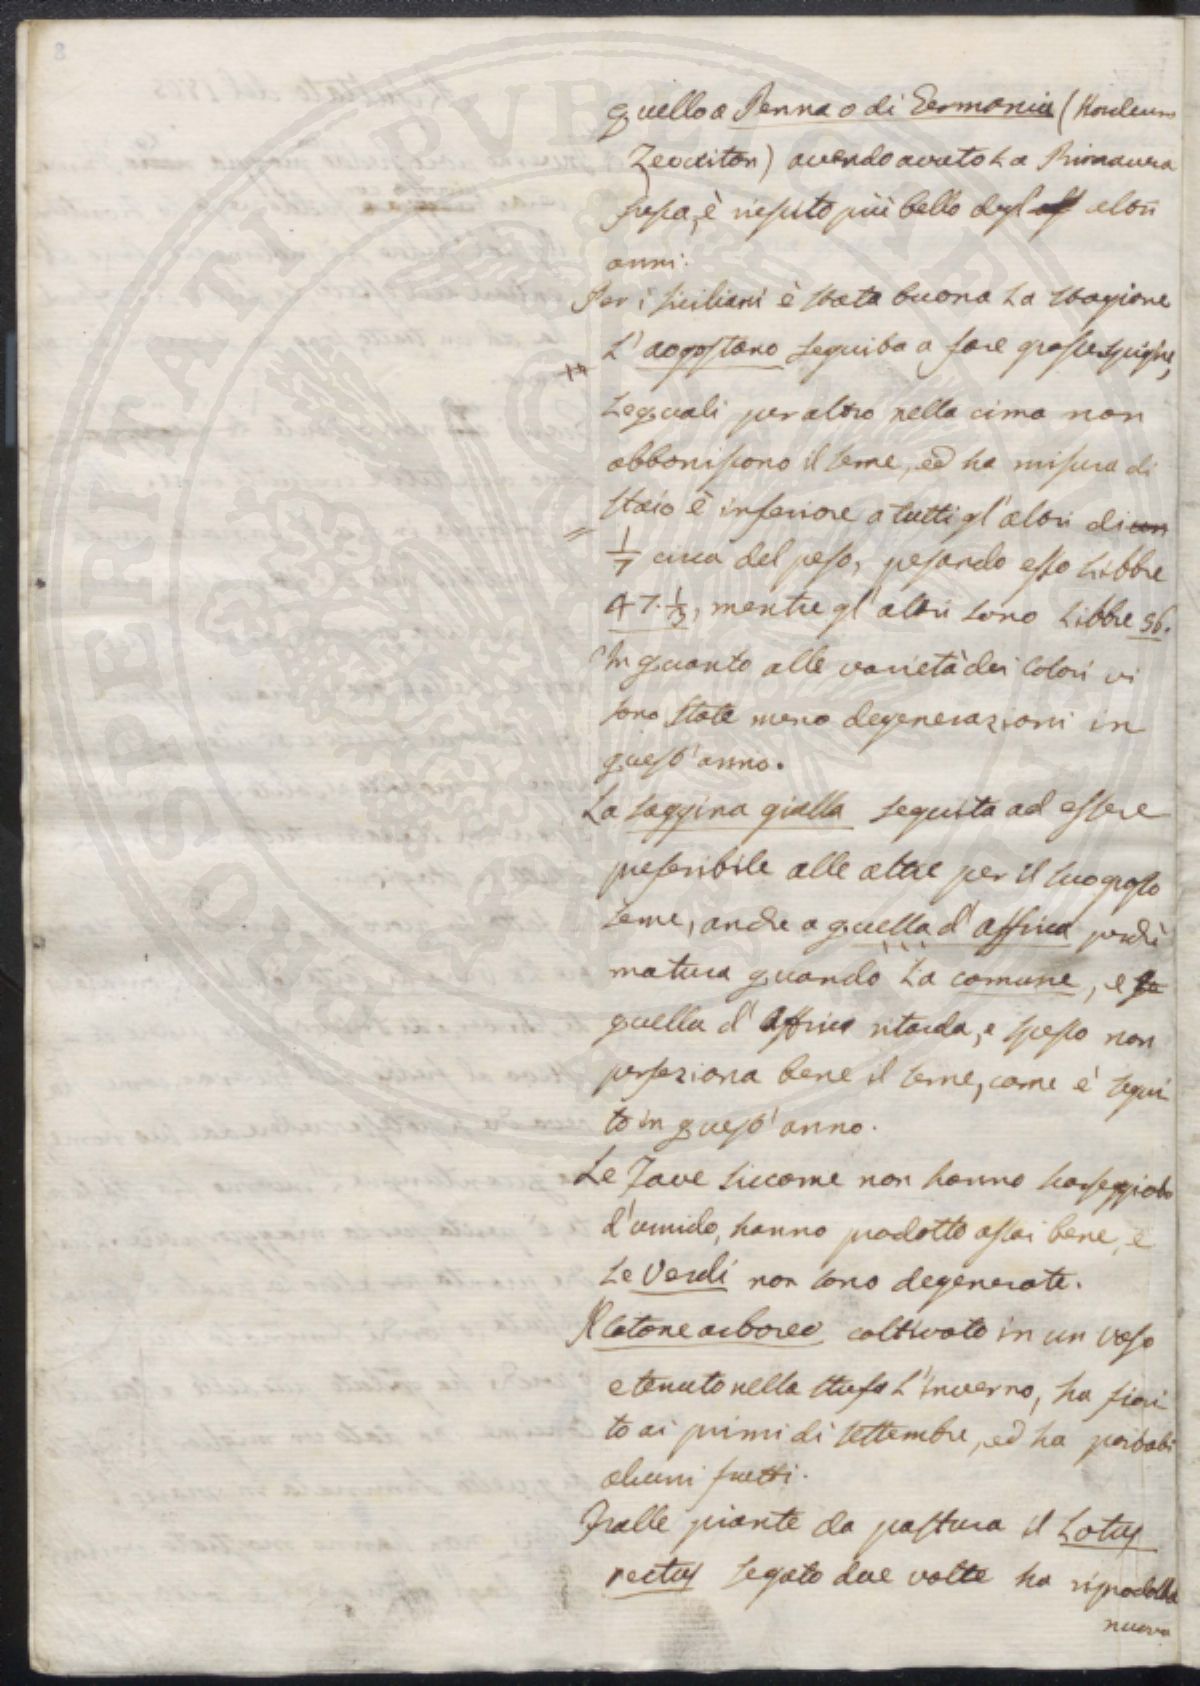 quello a Penna o di Germania (Hordeum
Zeocriton) avendo avuto La Primavera
fresca, è riescito più bello degl' altri
anni.
Per i siciliani è stata buona La stagione
L'agostano seguiba a fare grosse spighe,
Lequali per altro nella cima non
abboniscono il seme, ed ha misura di
Staio è inferiore a tutti gl'altri di un
1/7 circa del peso, pesando esso Libbre
47. 1/3, mentre gl'altri sono Libbre 56.
In quanto alle varietà dei Colori vi
sono state meno degenerazioni in
quest'anno.
La saggina gialla seguita ad essere
preferibile alle altre per il suo grosso
seme, anche a quella d'Affrica perchè
matura quando La comune, e
quella d'Affrica ritarda, e spesso non
perfeziona bene il seme, come è segui
to in quest'anno.
Le Fave siccome non hanno scarseggiato
d'umido, hanno prodotto assai bene, e
Le Verdi non sono degenerate.
Il Cotone arboreo coltivato in un vaso
e tenuto nella stufa L'inverno, ha fiori
to ai primi di settembre, ed ha portati
alcuni frutti.
Fralle piante da pastura il Lotus
rectus segato due volte ha riprodotta
nuova